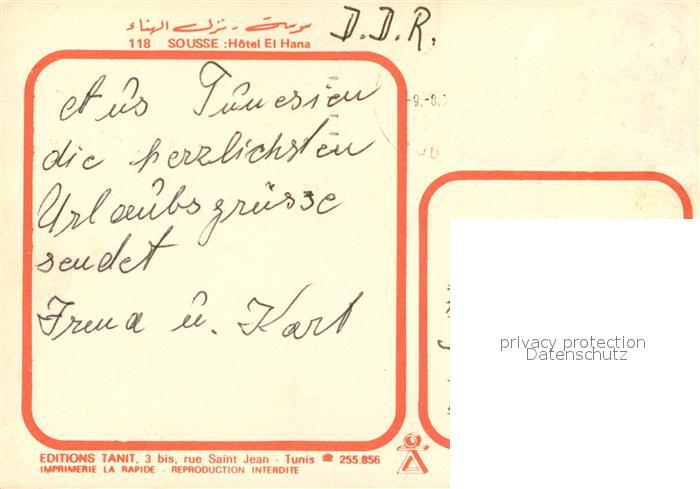 سوسة - نزل الهناء
118 SOUSSE : Hôtel El Hana
D.D.R.
-9.-8.
Aus Tunesien
die herzlichsten
Urlaubsgrüsse
sendet
Irma u. Karl
privacy protection
Datenschutz
EDITIONS TANIT, 3 bis, rue Saint Jean - Tunis ☎ 255.856
IMPRIMERIE LA RAPIDE - REPRODUCTION INTERDITE